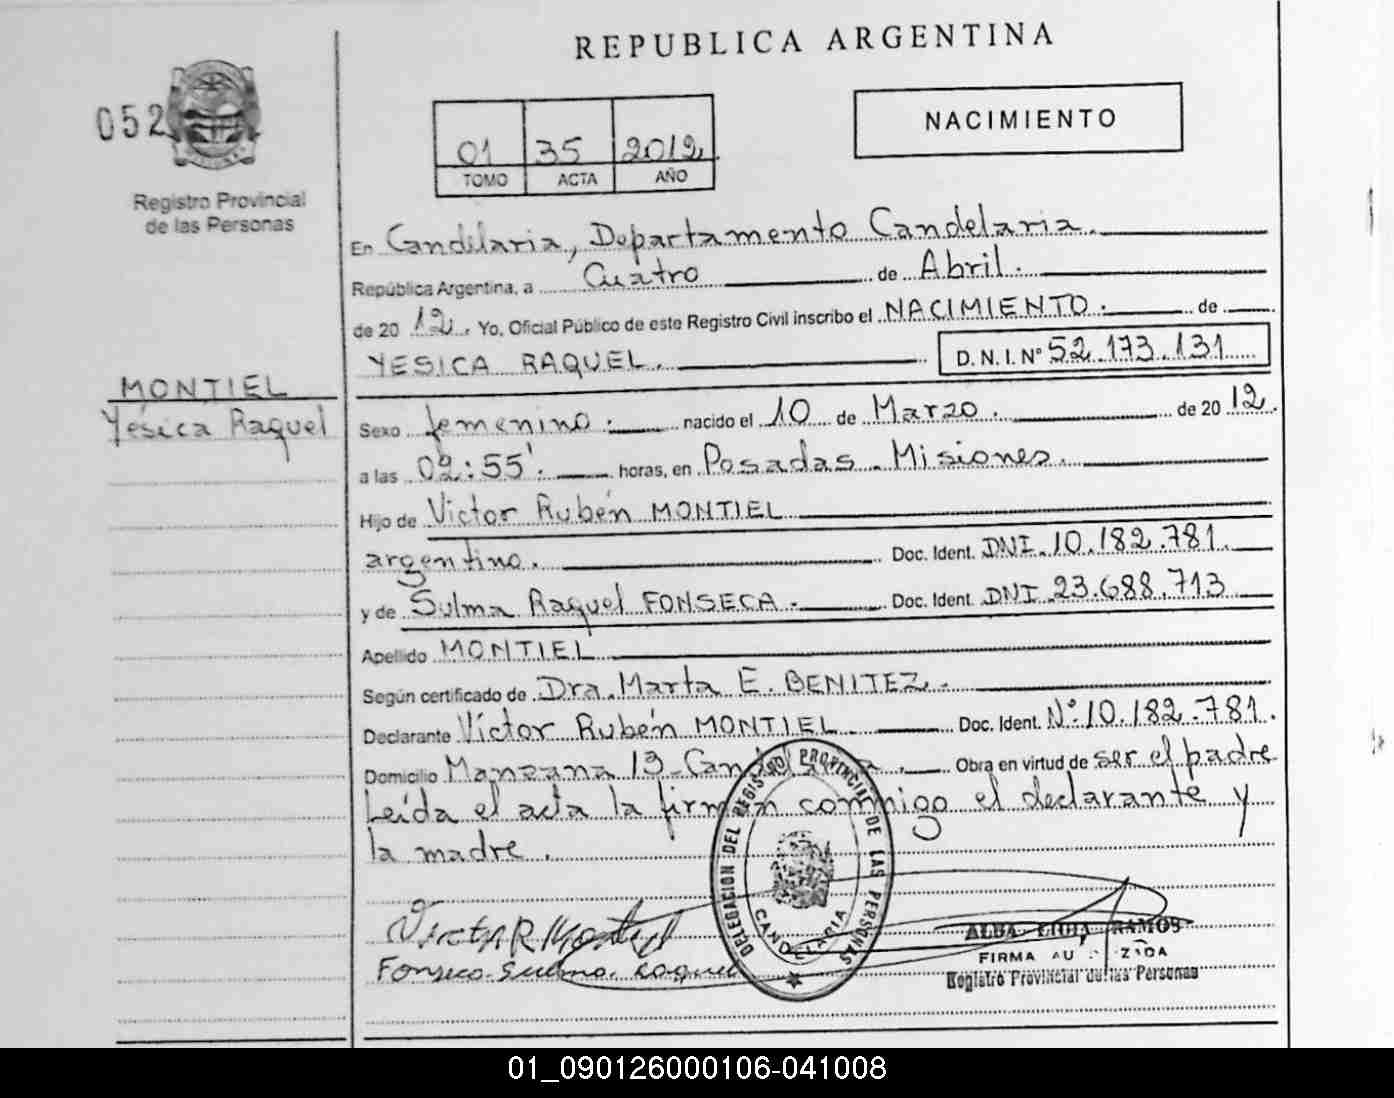 REPUBLICA ARGENTINA
052
Registro Provincial
de las Personas
01 35 2012
TOMO ACTA AÑO
NACIMIENTO
En Candelaria, Departamento Candelaria.
República Argentina, a Cuatro de Abril.
de 20 12. Yo, Oficial Público de este Registro Civil inscribo el NACIMIENTO. de
YESICA RAQUEL. D.N.I. Nº 52.173.131
MONTIEL
Yésica Raquel
Sexo femenino. nacido el 10 de Marzo. de 20 12.
a las 02:55'. horas, en Posadas - Misiones.
Hijo de Victor Rubén MONTIEL
argentino. Doc. Ident. DNI. 10.182.781.
y de Sulma Raquel FONSECA. Doc. Ident. DNI 23.688.713
Apellido MONTIEL
Según certificado de Dra. Marta E. BENITEZ.
Declarante Víctor Rubén MONTIEL Doc. Ident. Nº 10.182.781.
Domicilio Manzana 13 - Candelaria. Obra en virtud de ser el padre
Leída el acta la firman conmigo el declarante y
la madre.
DELEGACION DEL REGISTRO PROVINCIAL DE LAS PERSONAS
CANDELARIA
Victor R Montiel
Fonseca Sulma Raquel
ALBA LIDIA RAMOS
FIRMA AUTORIZADA
Registro Provincial de las Personas
01_090126000106-041008